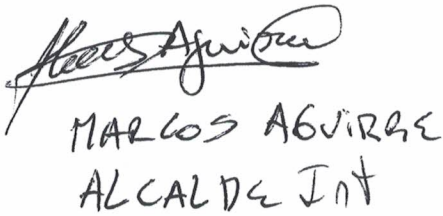 Marcos Aguirre
MARCOS AGUIRRE
ALCALDE Int